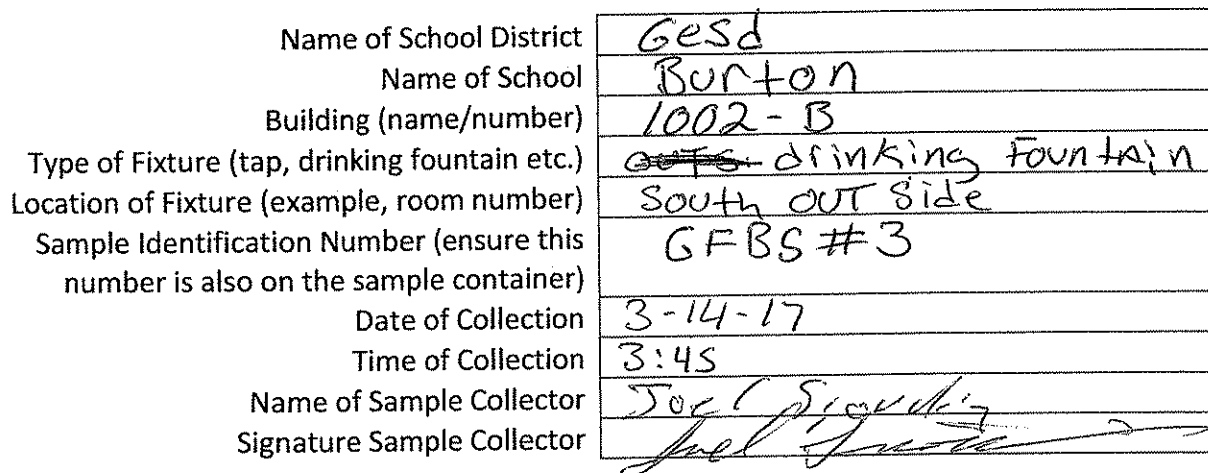 Name of School District Gesd
Name of School Burton
Building (name/number) 1002-B
Type of Fixture (tap, drinking fountain etc.) drinking Fountain
Location of Fixture (example, room number) South OUT Side
Sample Identification Number (ensure this GFBS #3
number is also on the sample container)
Date of Collection 3-14-17
Time of Collection 3:45
Name of Sample Collector Joel
Signature Sample Collector Joel